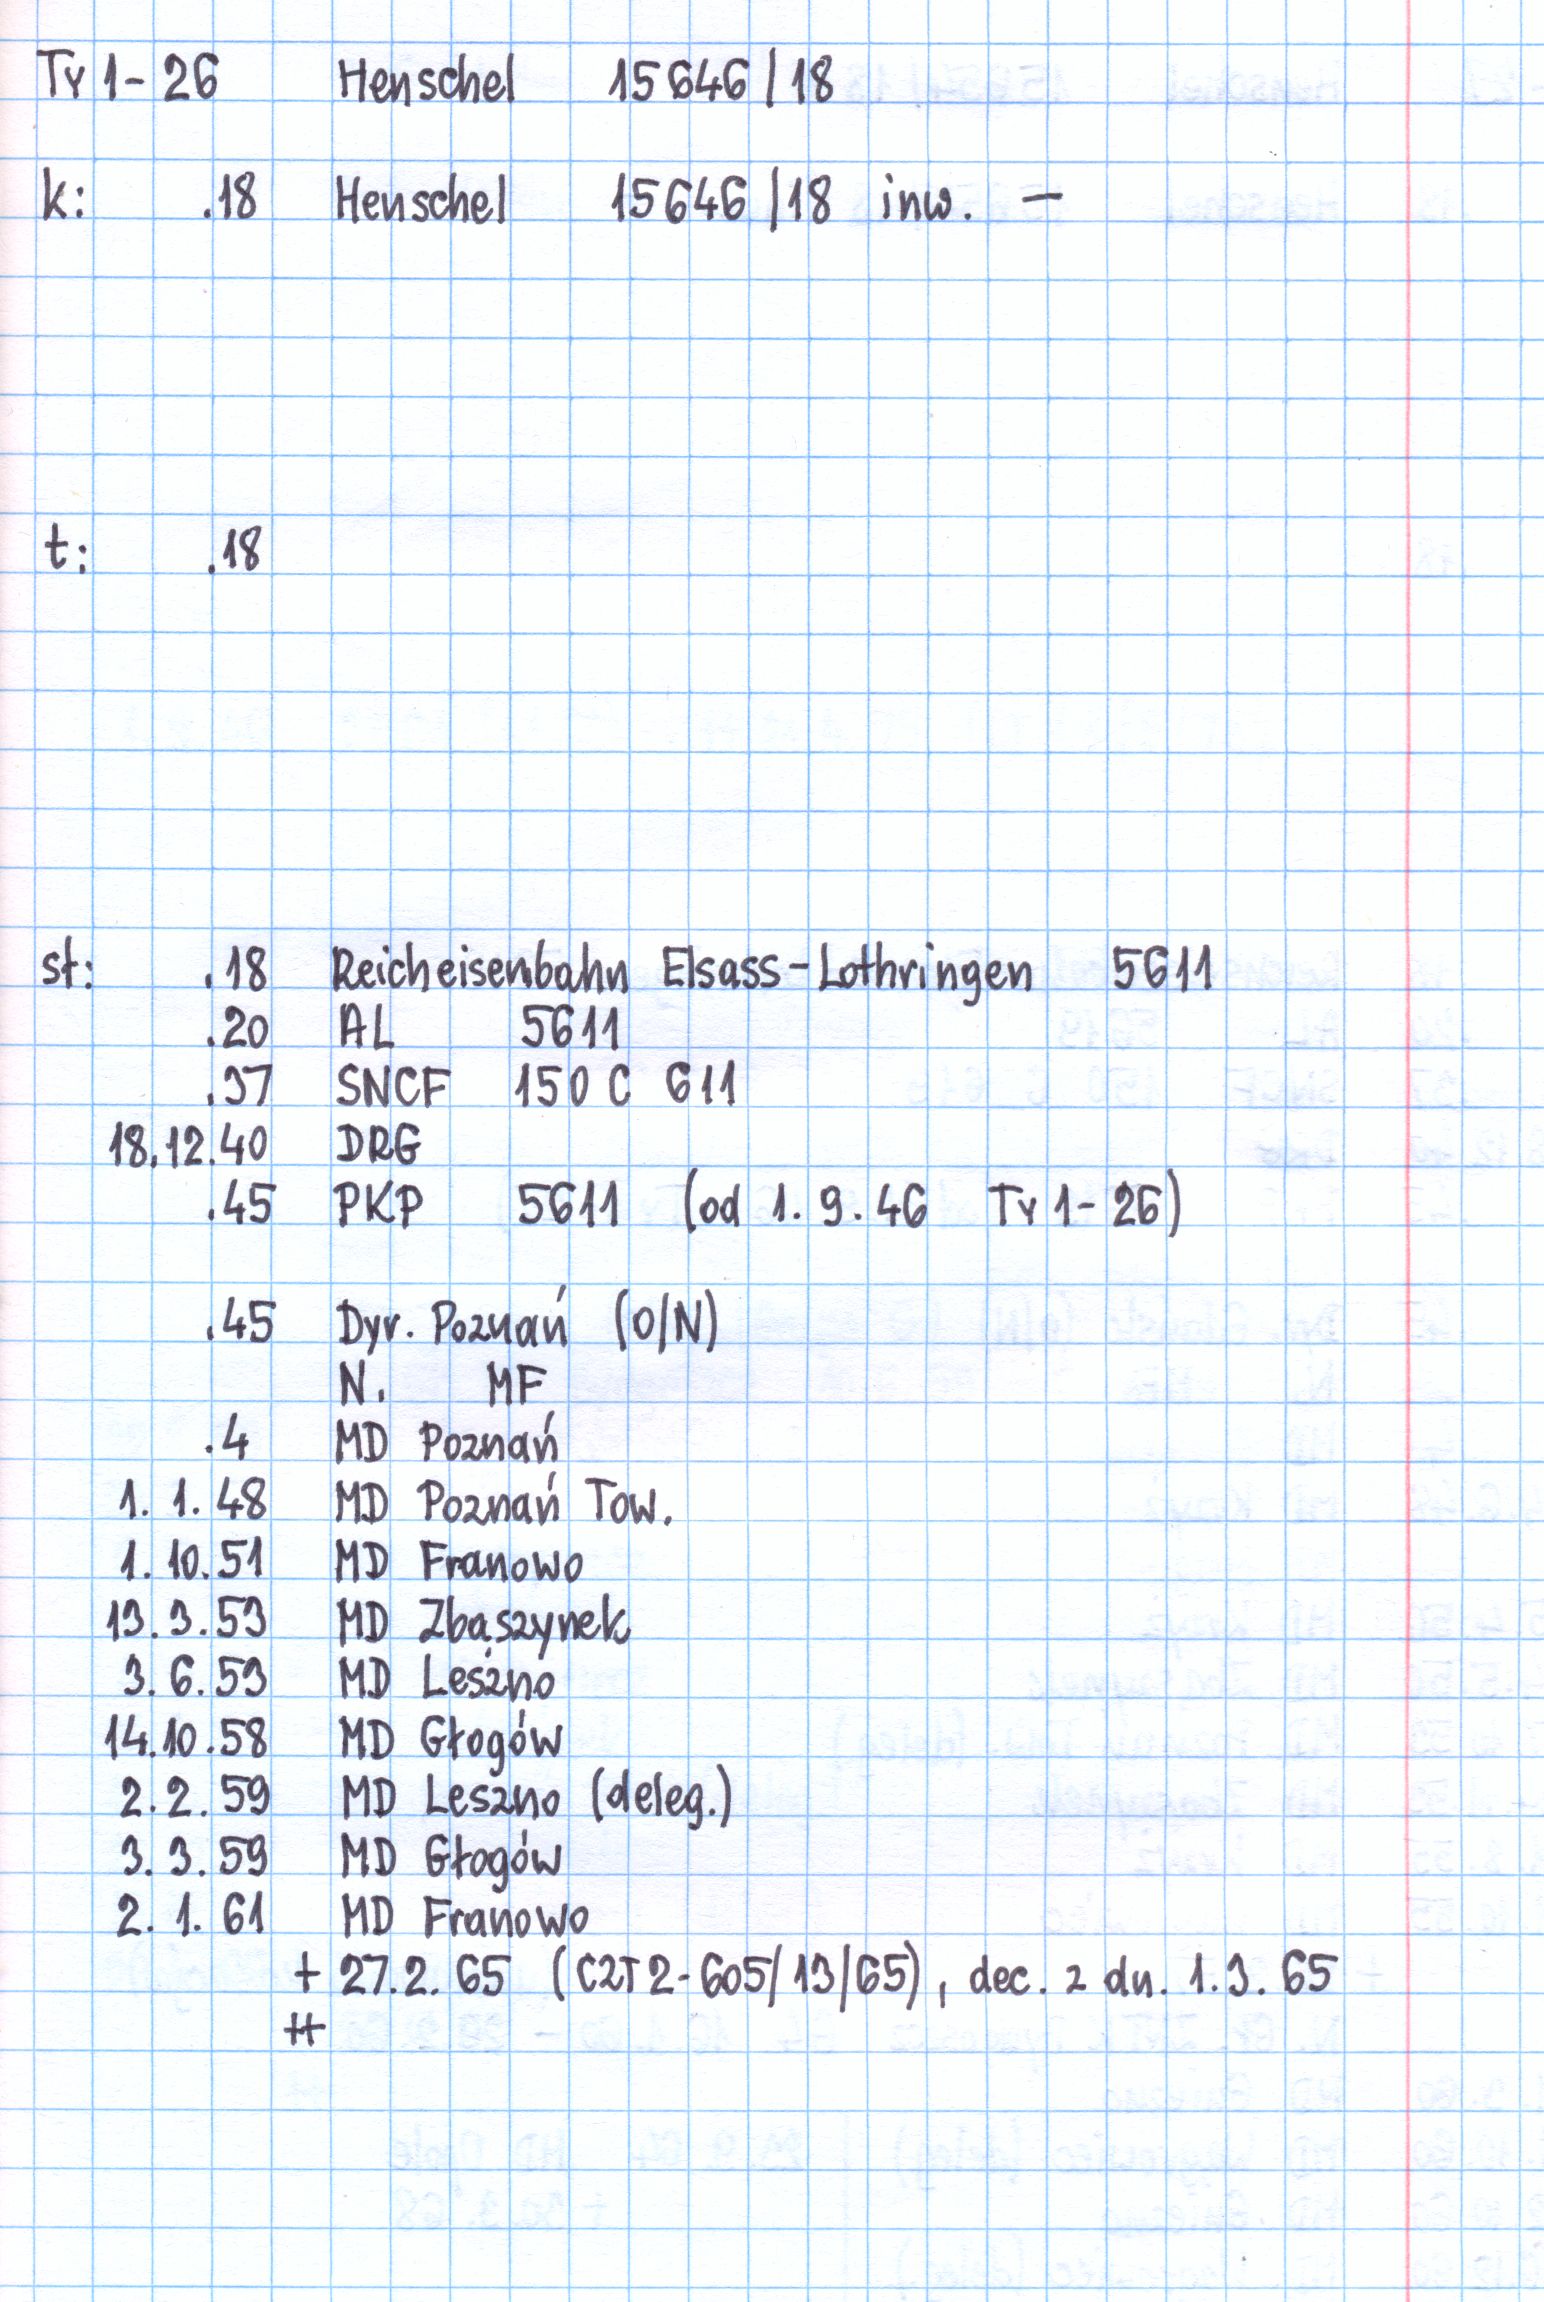 Ty 1-26 Henschel 15646/18
k: .18 Henschel 15646/18 inw. —
t: .18
st: .18 Reicheisenbahn Elsass-Lothringen 5611
.20 AL 5611
.37 SNCF 150 C 611
18.12.40 DRG
.45 PKP 5611 (od 1.9.46 Ty 1-26)
.45 Dyr. Poznań (O/N)
N. MF
.4 MD Poznań
1.1.48 MD Poznań Tow.
1.10.51 MD Franowo
13.3.53 MD Zbąszynek
3.6.53 MD Leszno
14.10.58 MD Głogów
2.2.59 MD Leszno (deleg.)
3.3.59 MD Głogów
2.1.61 MD Franowo
+ 27.2.65 (C2T2-605/13/65), dec. z dn. 1.3.65
++